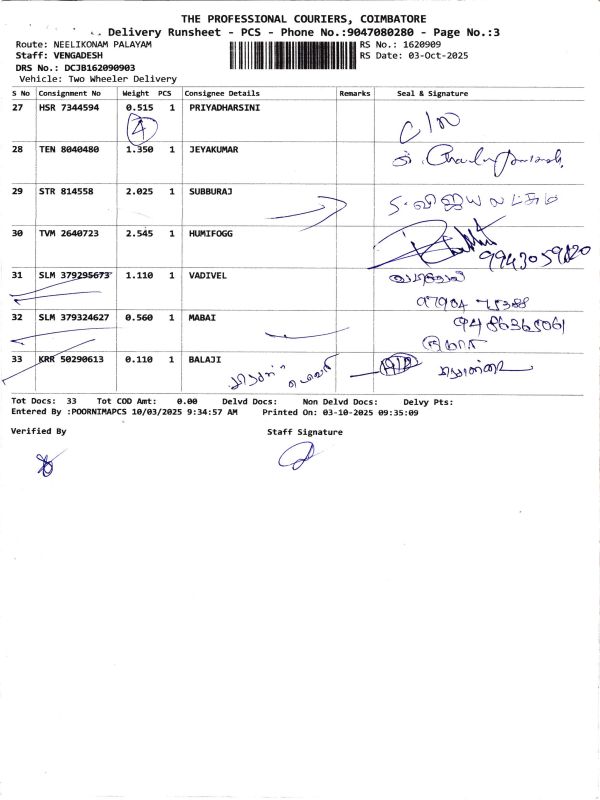 THE PROFESSIONAL COURIERS, COIMBATORE
Delivery Runsheet - PCS - Phone No.:9047080280 - Page No.:3
Route: NEELIKONAM PALAYAM RS No.: 1620909
Staff: VENGADESH RS Date: 03-Oct-2025
DRS No.: DCJB162090903
Vehicle: Two Wheeler Delivery
S No Consignment No Weight PCS Consignee Details Remarks Seal & Signature
27 HSR 7344594 0.515 1 PRIYADHARSINI
4
28 TEN 8040480 1.350 1 JEYAKUMAR
29 STR 814558 2.025 1 SUBBURAJ
30 TVM 2640723 2.545 1 HUMIFOGG
31 SLM 379295673 1.110 1 VADIVEL
32 SLM 379324627 0.560 1 MABAI
33 KRR 50290613 0.110 1 BALAJI
Tot Docs: 33 Tot COD Amt: 0.00 Delvd Docs: Non Delvd Docs: Delvy Pts:
Entered By :POORNIMAPCS 10/03/2025 9:34:57 AM Printed On: 03-10-2025 09:35:09
Verified By Staff Signature